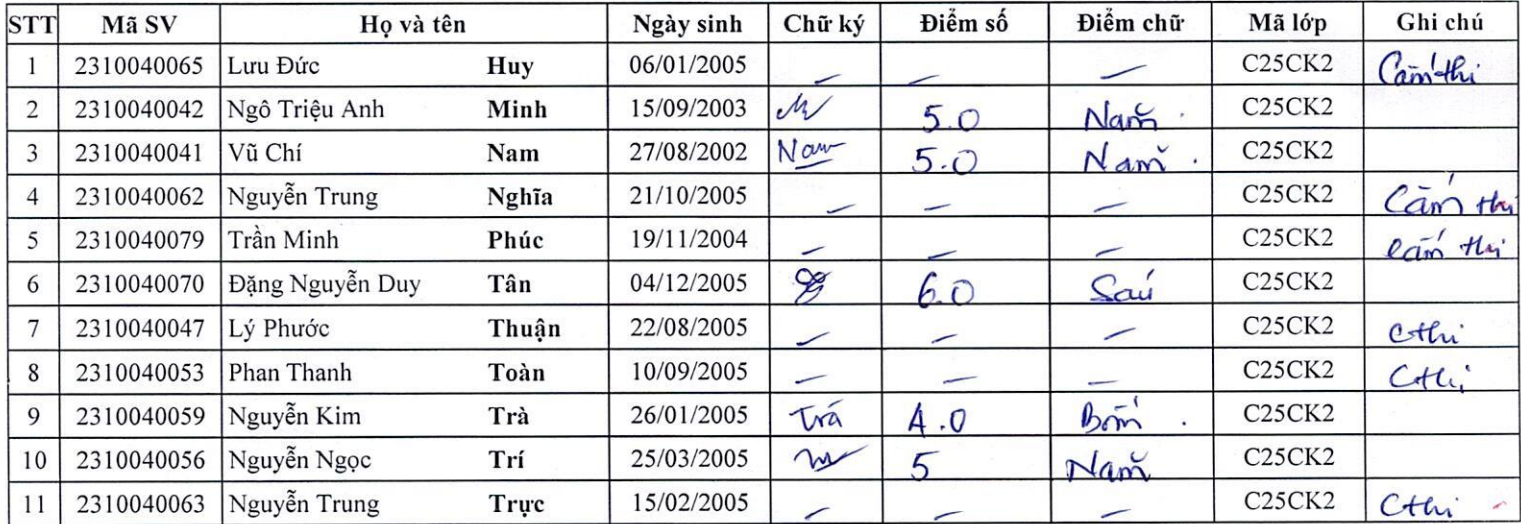 STT Mã SV Họ và tên Ngày sinh Chữ ký Điểm số Điểm chữ Mã lớp Ghi chú
1 2310040065 Lưu Đức Huy 06/01/2005 – – – C25CK2 Cấm thi
2 2310040042 Ngô Triệu Anh Minh 15/09/2003 5.0 Năm . C25CK2
3 2310040041 Vũ Chí Nam 27/08/2002 Nam 5.0 Năm . C25CK2
4 2310040062 Nguyễn Trung Nghĩa 21/10/2005 – – – C25CK2 Cấm thi
5 2310040079 Trần Minh Phúc 19/11/2004 – – – C25CK2 Cấm thi
6 2310040070 Đặng Nguyễn Duy Tân 04/12/2005 6.0 Sáu C25CK2
7 2310040047 Lý Phước Thuận 22/08/2005 – – – C25CK2 Cthi
8 2310040053 Phan Thanh Toàn 10/09/2005 – – – C25CK2 Cthi
9 2310040059 Nguyễn Kim Trà 26/01/2005 Trà 4.0 Bốn . C25CK2
10 2310040056 Nguyễn Ngọc Trí 25/03/2005 5 Năm C25CK2
11 2310040063 Nguyễn Trung Trực 15/02/2005 – – – C25CK2 Cthi